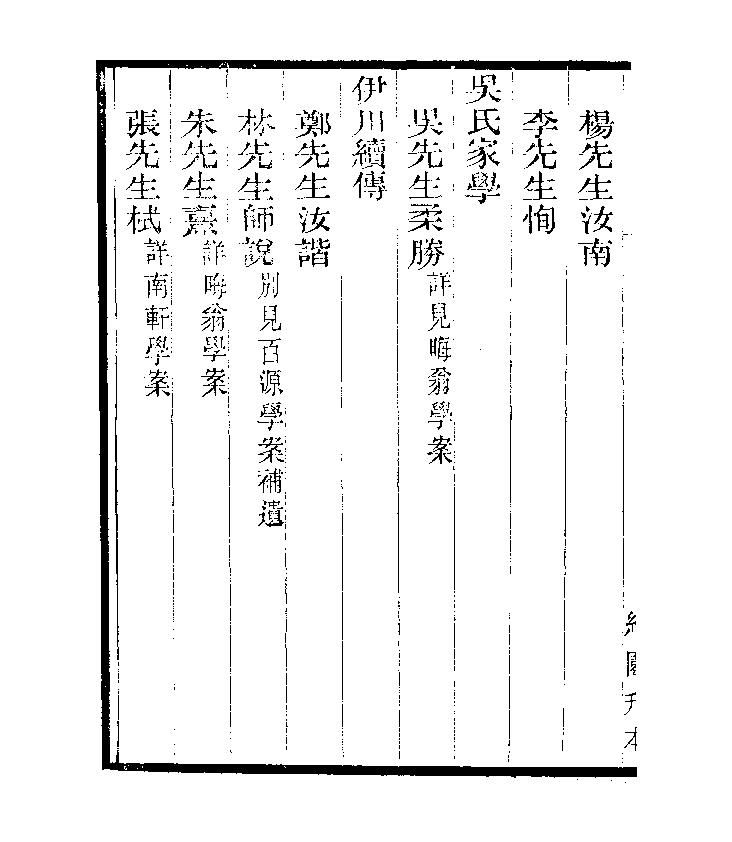 楊先生汝南
李先生恂
吳氏家學
吳先生柔勝詳見晦翁學案
伊川續傳
鄭先生汝諧
林先生師說別見百源學案補遺
朱先生熹詳晦翁學案
張先生栻詳南軒學案